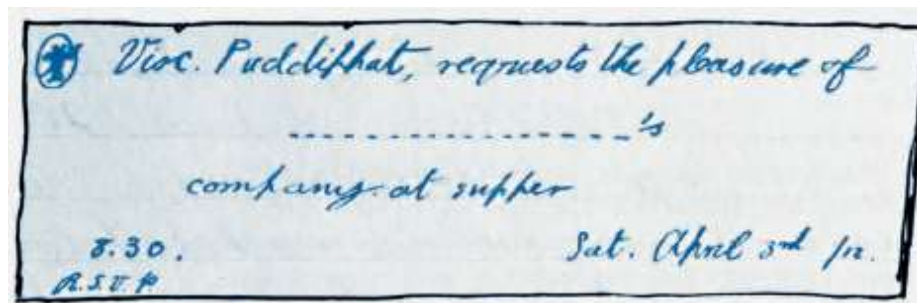 Visc. Puddiphat, requests the pleasure of
-------------------'s
company at supper
8.30. Sat. April 3rd
R.S.V.P.